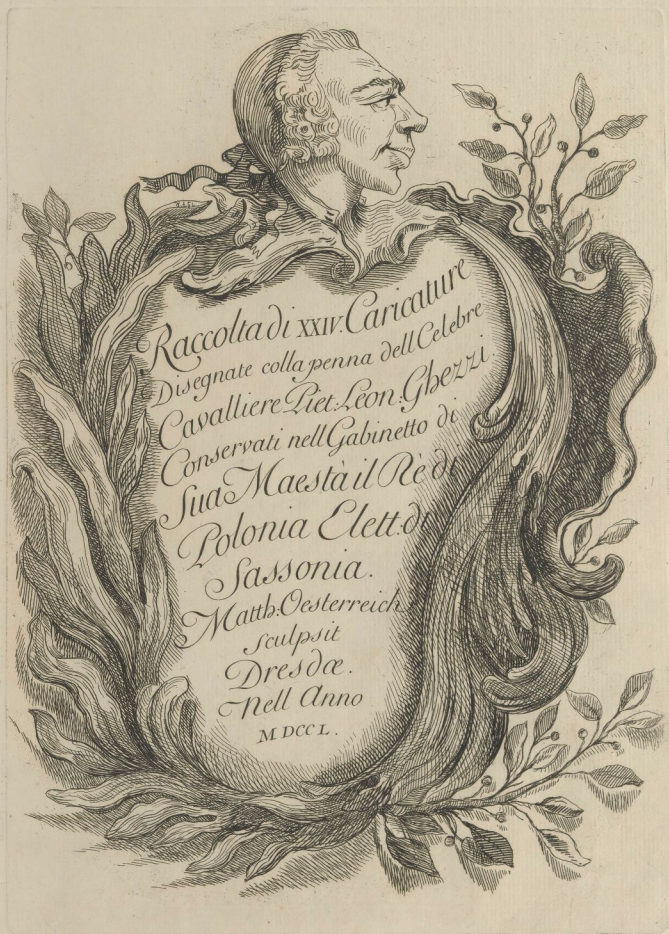 Raccolta di XXIV. Caricature
Disegnate colla penna dell Celebre
Cavalliere Piet: Leon: Ghezzi.
Conservati nell Gabinetto di
Sua Maestà il Rè di
Polonia Elett: di
Sassonia.
Matth: Oesterreich
sculpsit
Dresdæ.
Nell Anno
MDCCL.